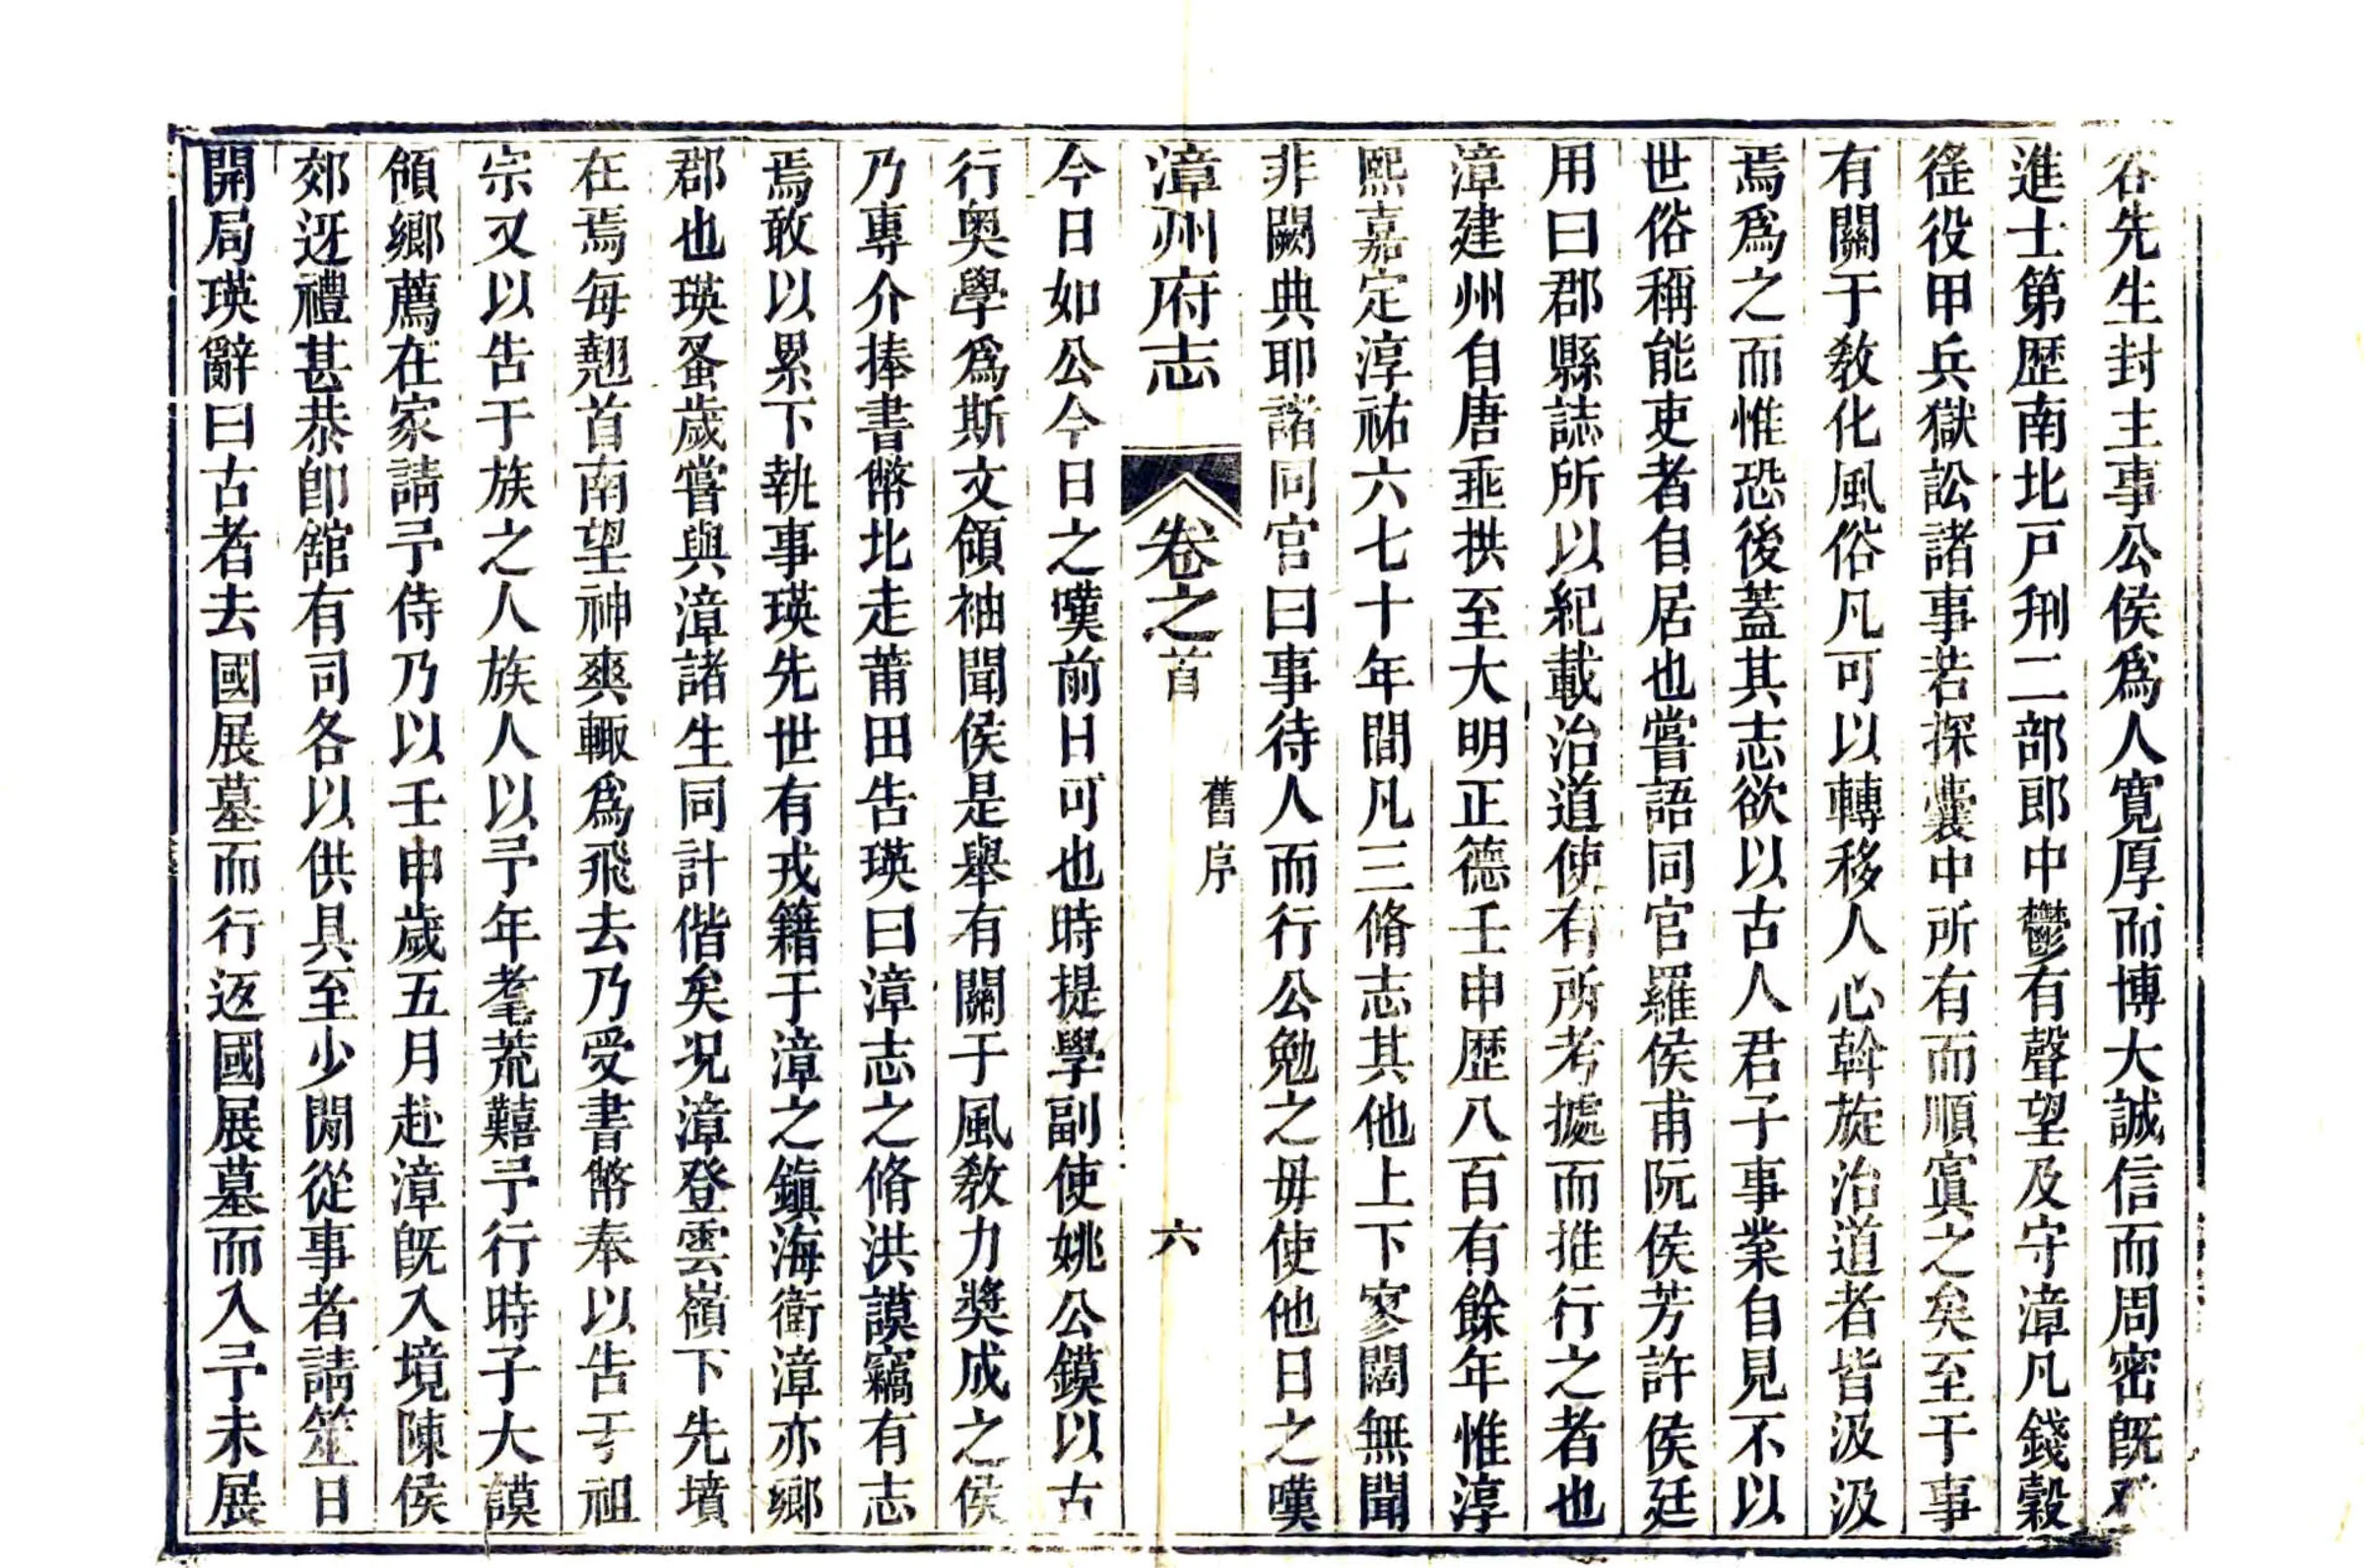 谷先生封主事公侯爲人寛厚而博大誠信而周密旣
進士第歴南北戸刑二部郎中鬱有聲望及守漳凡錢穀
徭役甲兵獄訟諸事若探囊中所有而順寘之矣至于事
有關于敎化風俗凡可以轉移人心斡旋治道者皆汲汲
焉爲之而惟恐後蓋其志欲以古人君子事業自見不以
世俗稱能吏者自居也嘗語同官羅侯甫阮侯芳許侯廷
用曰郡縣誌所以紀載治道使有所考據而推行之者也
漳建州自唐垂拱至大明正德壬申歴八百有餘年惟淳
熙嘉定淳祐六七十年間凡三脩志其他上下寥闊無聞
非闕典耶諸同官曰事待人而行公勉之毋使他日之嘆
漳州府志 卷之首 舊序 六
今日如公今日之嘆前日可也時提學副使姚公鏌以古
行奥學爲斯文領袖聞侯是舉有關于風敎力奬成之侯
乃專介捧書幣北走莆田告瑛曰漳志之脩洪謨竊有志
焉敢以累下執事瑛先世有戎籍于漳之鎭海衛漳亦鄉
郡也瑛蚤歲嘗與漳諸生同計偕矣况漳登雲嶺下先墳
在焉每翹首南望神爽輙爲飛去乃受書幣奉以告于祖
宗又以告于族之人族人以予年耄荒難予行時子大謨
領鄉薦在家請予侍乃以壬申歲五月赴漳旣入境陳侯
郊迓禮甚恭卽舘有司各以供具至少閒從事者請筮日
開局瑛辭曰古者去國展墓而行返國展墓而入予未展